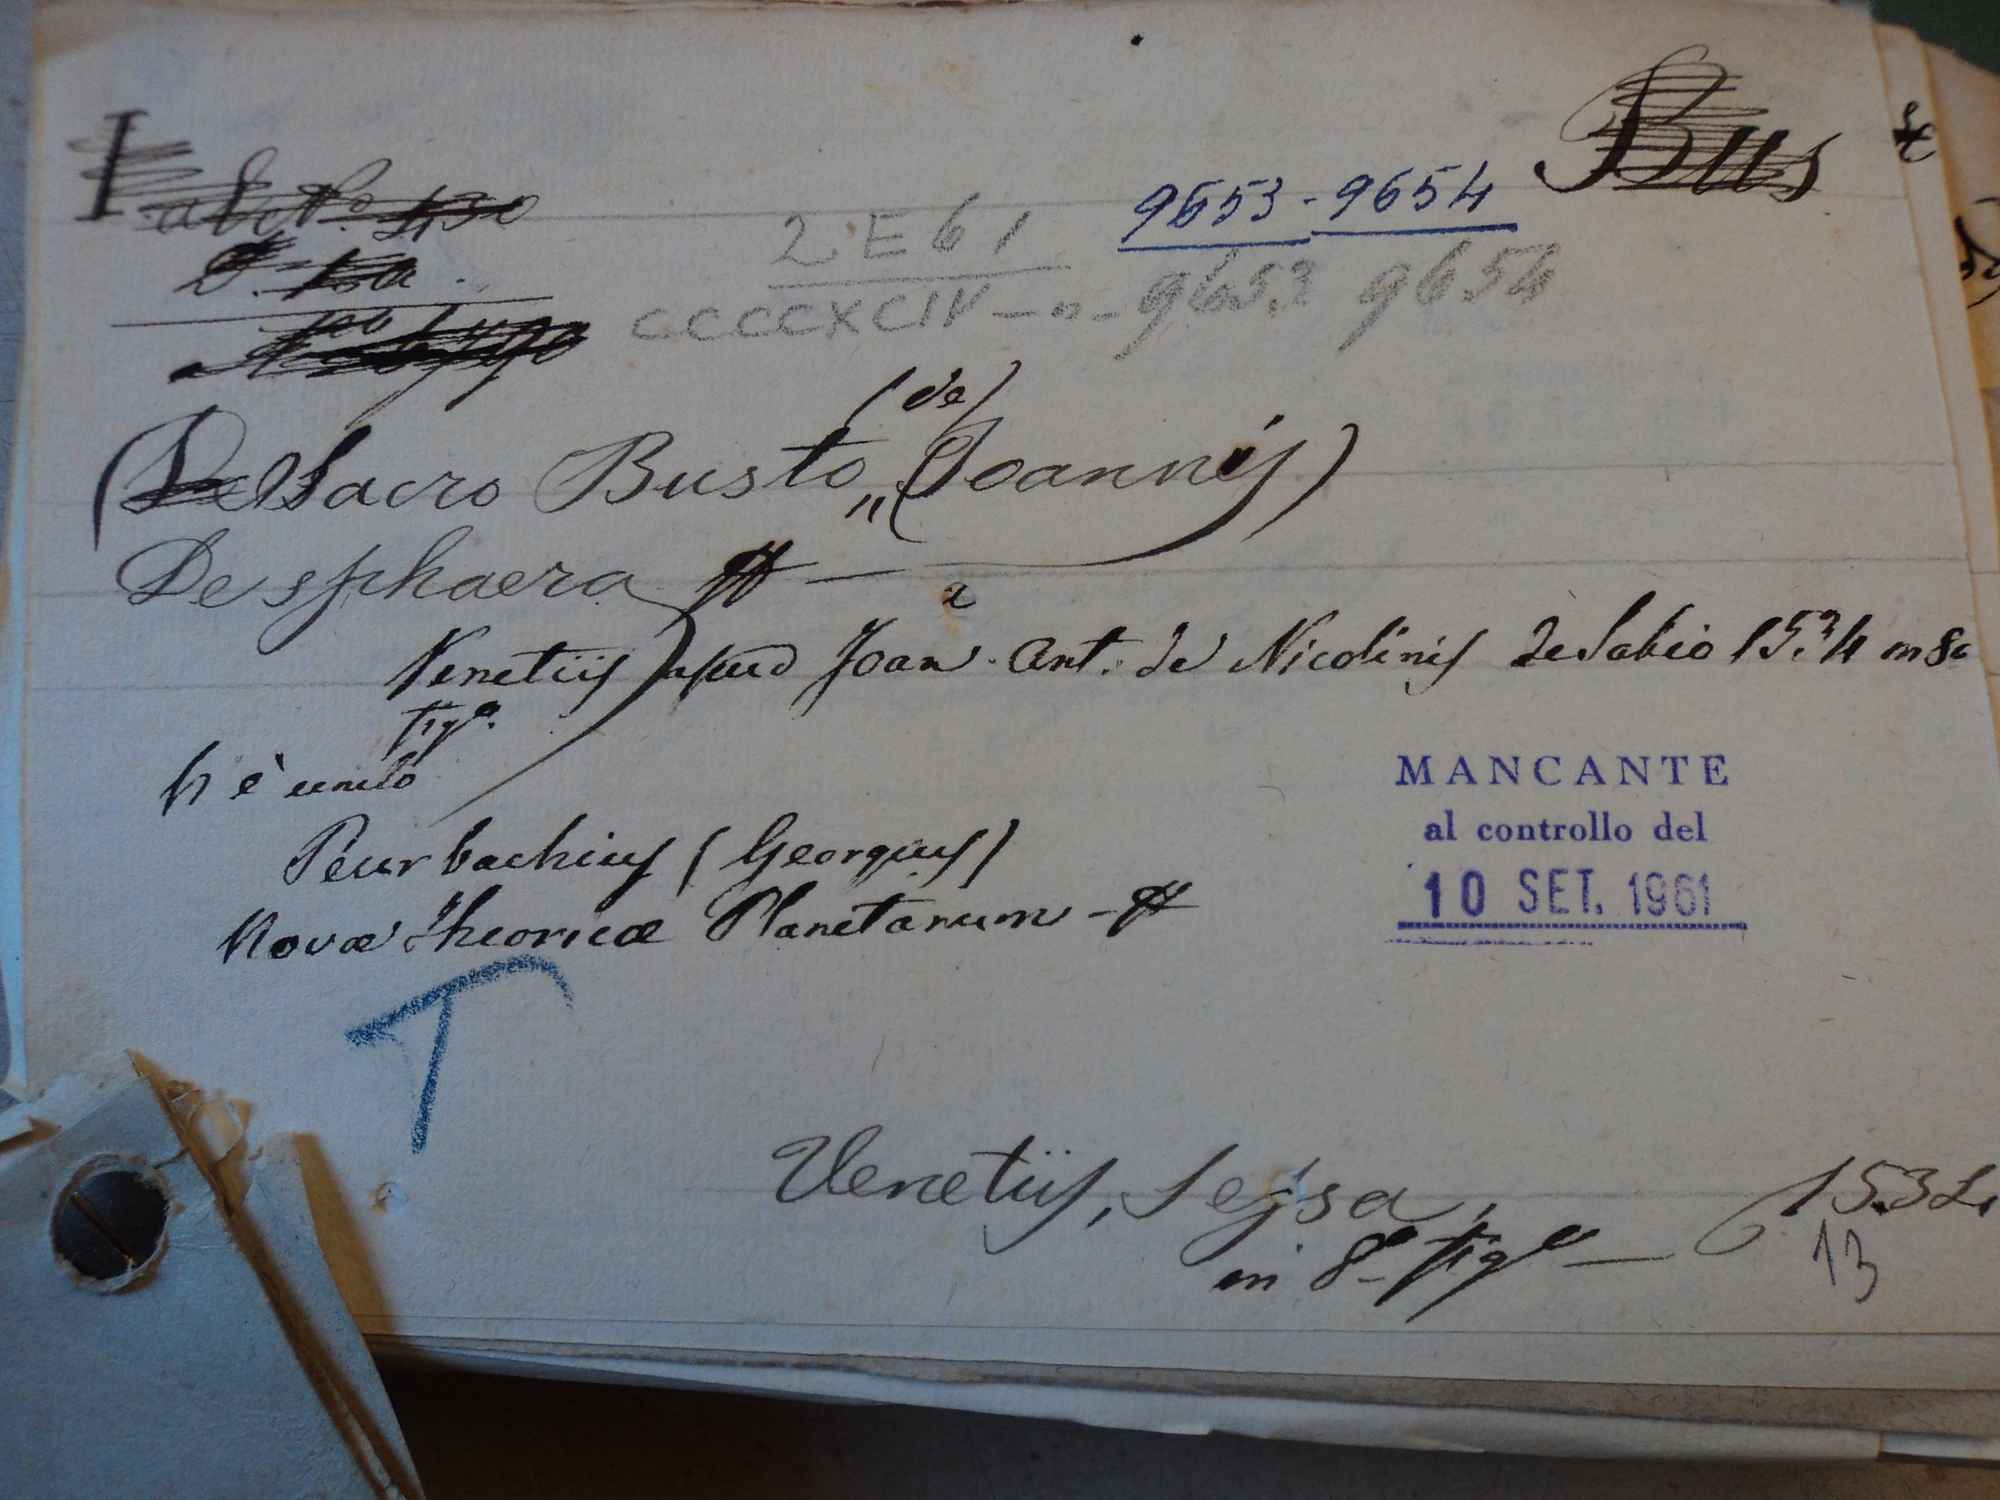 Bus
9653 - 9654
2 E 61
CCCCXCIV — n - 9653 9654
(de)
(De Sacro Busto,, (Joannis)
De sphaera
Venetiis apud Joan. Ant. de Nicolinis de Sabio 1534 in 8o
fig.e
vi è unito
Peurbachius (Georgius)
Novae Theoricae Planetarum -
MANCANTE
al controllo del
10 SET. 1961
T
Venetiis, Sessa,
in 8° fig.e —
13